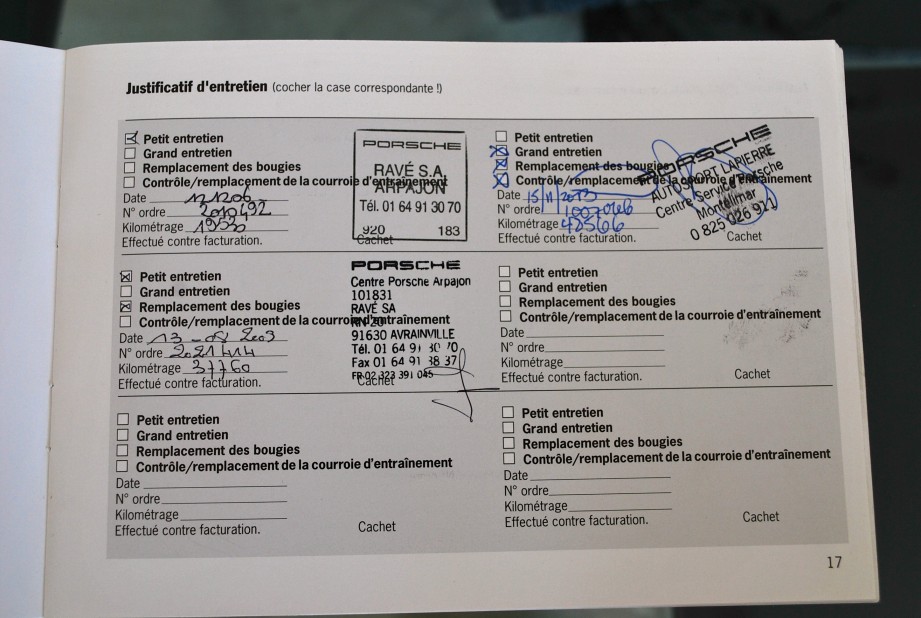 Justificatif d'entretien (cocher la case correspondante !)
Petit entretien
Grand entretien
Remplacement des bougies
Contrôle/remplacement de la courroie d'entraînement
Date
N° ordre 2010492
Kilométrage 19530
Effectué contre facturation.
PORSCHE
RAVÉ S.A.
ARPAJON
Tél. 01 64 91 30 70
920 183
Cachet
Petit entretien
Grand entretien
Remplacement des bougies
Contrôle/remplacement de la courroie d'entraînement
Date 15/11/2013
N° ordre 1007046
Kilométrage 48566
Effectué contre facturation.
PORSCHE
AUTOSPORT LAPIERRE
Centre Service Porsche
Montélimar
0 825 026 921
Cachet
Petit entretien
Grand entretien
Remplacement des bougies
Contrôle/remplacement de la courroie d'entraînement
Date 13-08 2003
N° ordre 2021414
Kilométrage 37760
Effectué contre facturation.
PORSCHE
Centre Porsche Arpajon
101831
RAVÉ SA
RN 20
91630 AVRAINVILLE
Tél. 01 64 91 30 70
Fax 01 64 91 38 37
FR 02 323 391 045
Cachet
Petit entretien
Grand entretien
Remplacement des bougies
Contrôle/remplacement de la courroie d'entraînement
Date
N° ordre
Kilométrage
Effectué contre facturation.
Cachet
Petit entretien
Grand entretien
Remplacement des bougies
Contrôle/remplacement de la courroie d'entraînement
Date
N° ordre
Kilométrage
Effectué contre facturation.
Cachet
Petit entretien
Grand entretien
Remplacement des bougies
Contrôle/remplacement de la courroie d'entraînement
Date
N° ordre
Kilométrage
Effectué contre facturation.
Cachet
17